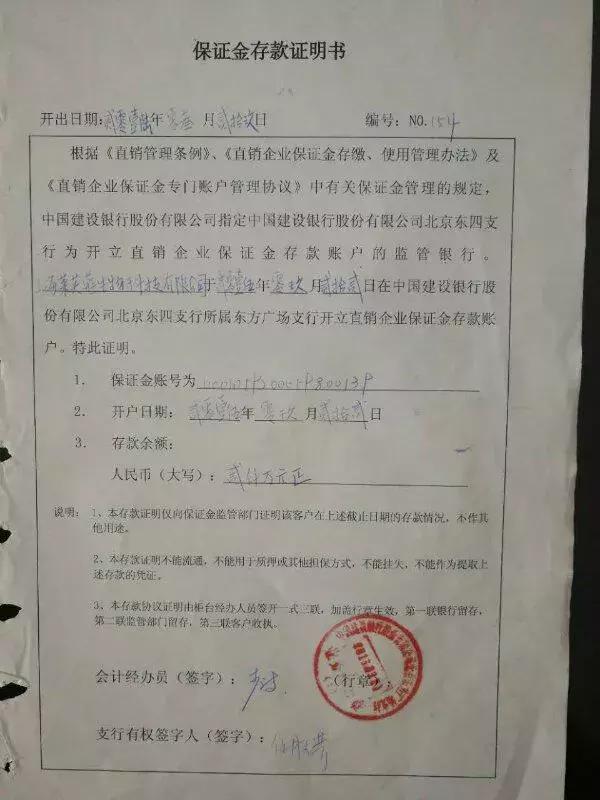 保证金存款证明书
开出日期:贰零壹陆年 零叁 月贰拾玖日 编号: NO.154
根据《直销管理条例》、《直销企业保证金存缴、使用管理办法》及
《直销企业保证金专门账户管理协议》中有关保证金管理的规定，
中国建设银行股份有限公司指定中国建设银行股份有限公司北京东四支
行为开立直销企业保证金存款账户的监管银行。
科技有限公司于贰零壹伍年零玖月贰拾贰日在中国建设银行股
份有限公司北京东四支行所属东方广场支行开立直销企业保证金存款账
户。特此证明。
1. 保证金账号为
2. 开户日期: 贰零壹伍年 零玖 月贰拾贰日
3. 存款余额:
人民币（大写）: 贰仟万元正
说明: 1、本存款证明仅向保证金监管部门证明该客户在上述截止日期的存款情况，不作其
他用途。
2、本存款证明不能流通，不能用于质押或其他担保方式，不能挂失，不能作为提取上
述存款的凭证。
3、本存款协议证明由柜台经办人员签开一式三联，加盖行章生效，第一联银行留存，
第二联监管部门留存，第三联客户收执。
会计经办员（签字）: （行章）
支行有权签字人（签字）: